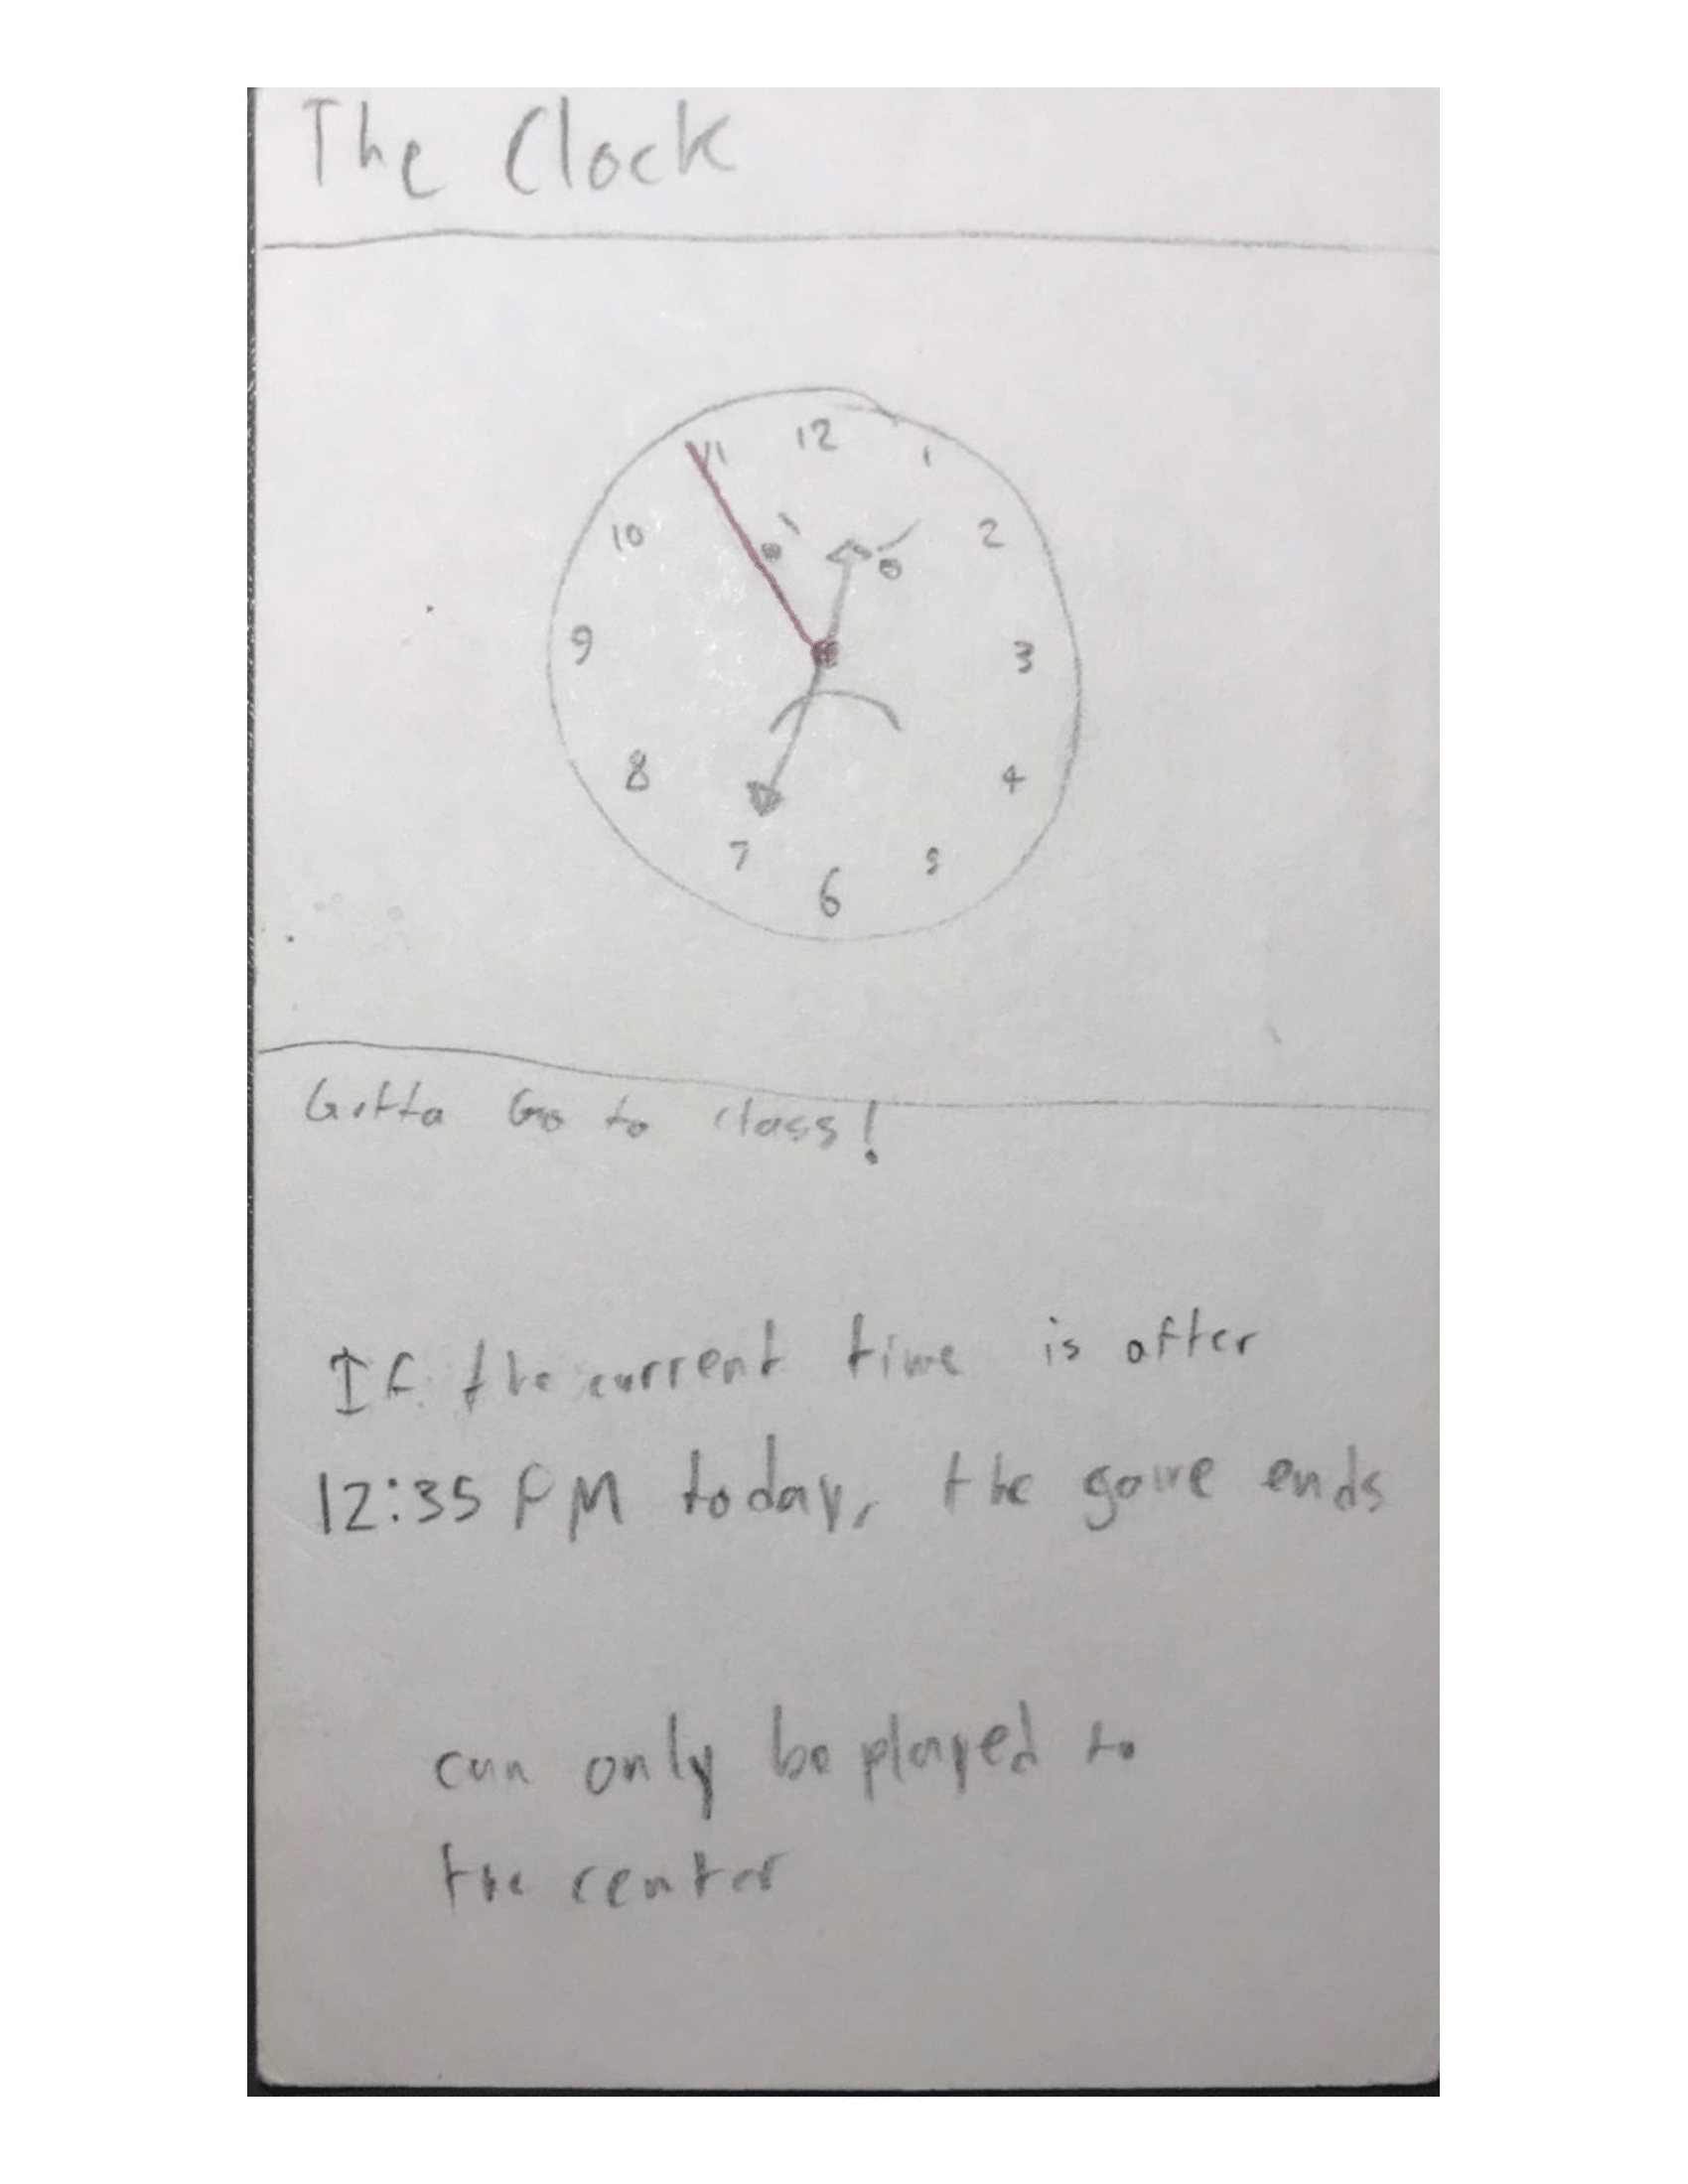 The Clock
12
11
1
10
2
9
3
8
4
7
5
6
Gotta Go to class!
If the current time is after
12:35 PM today, the game ends
can only be played to
the center